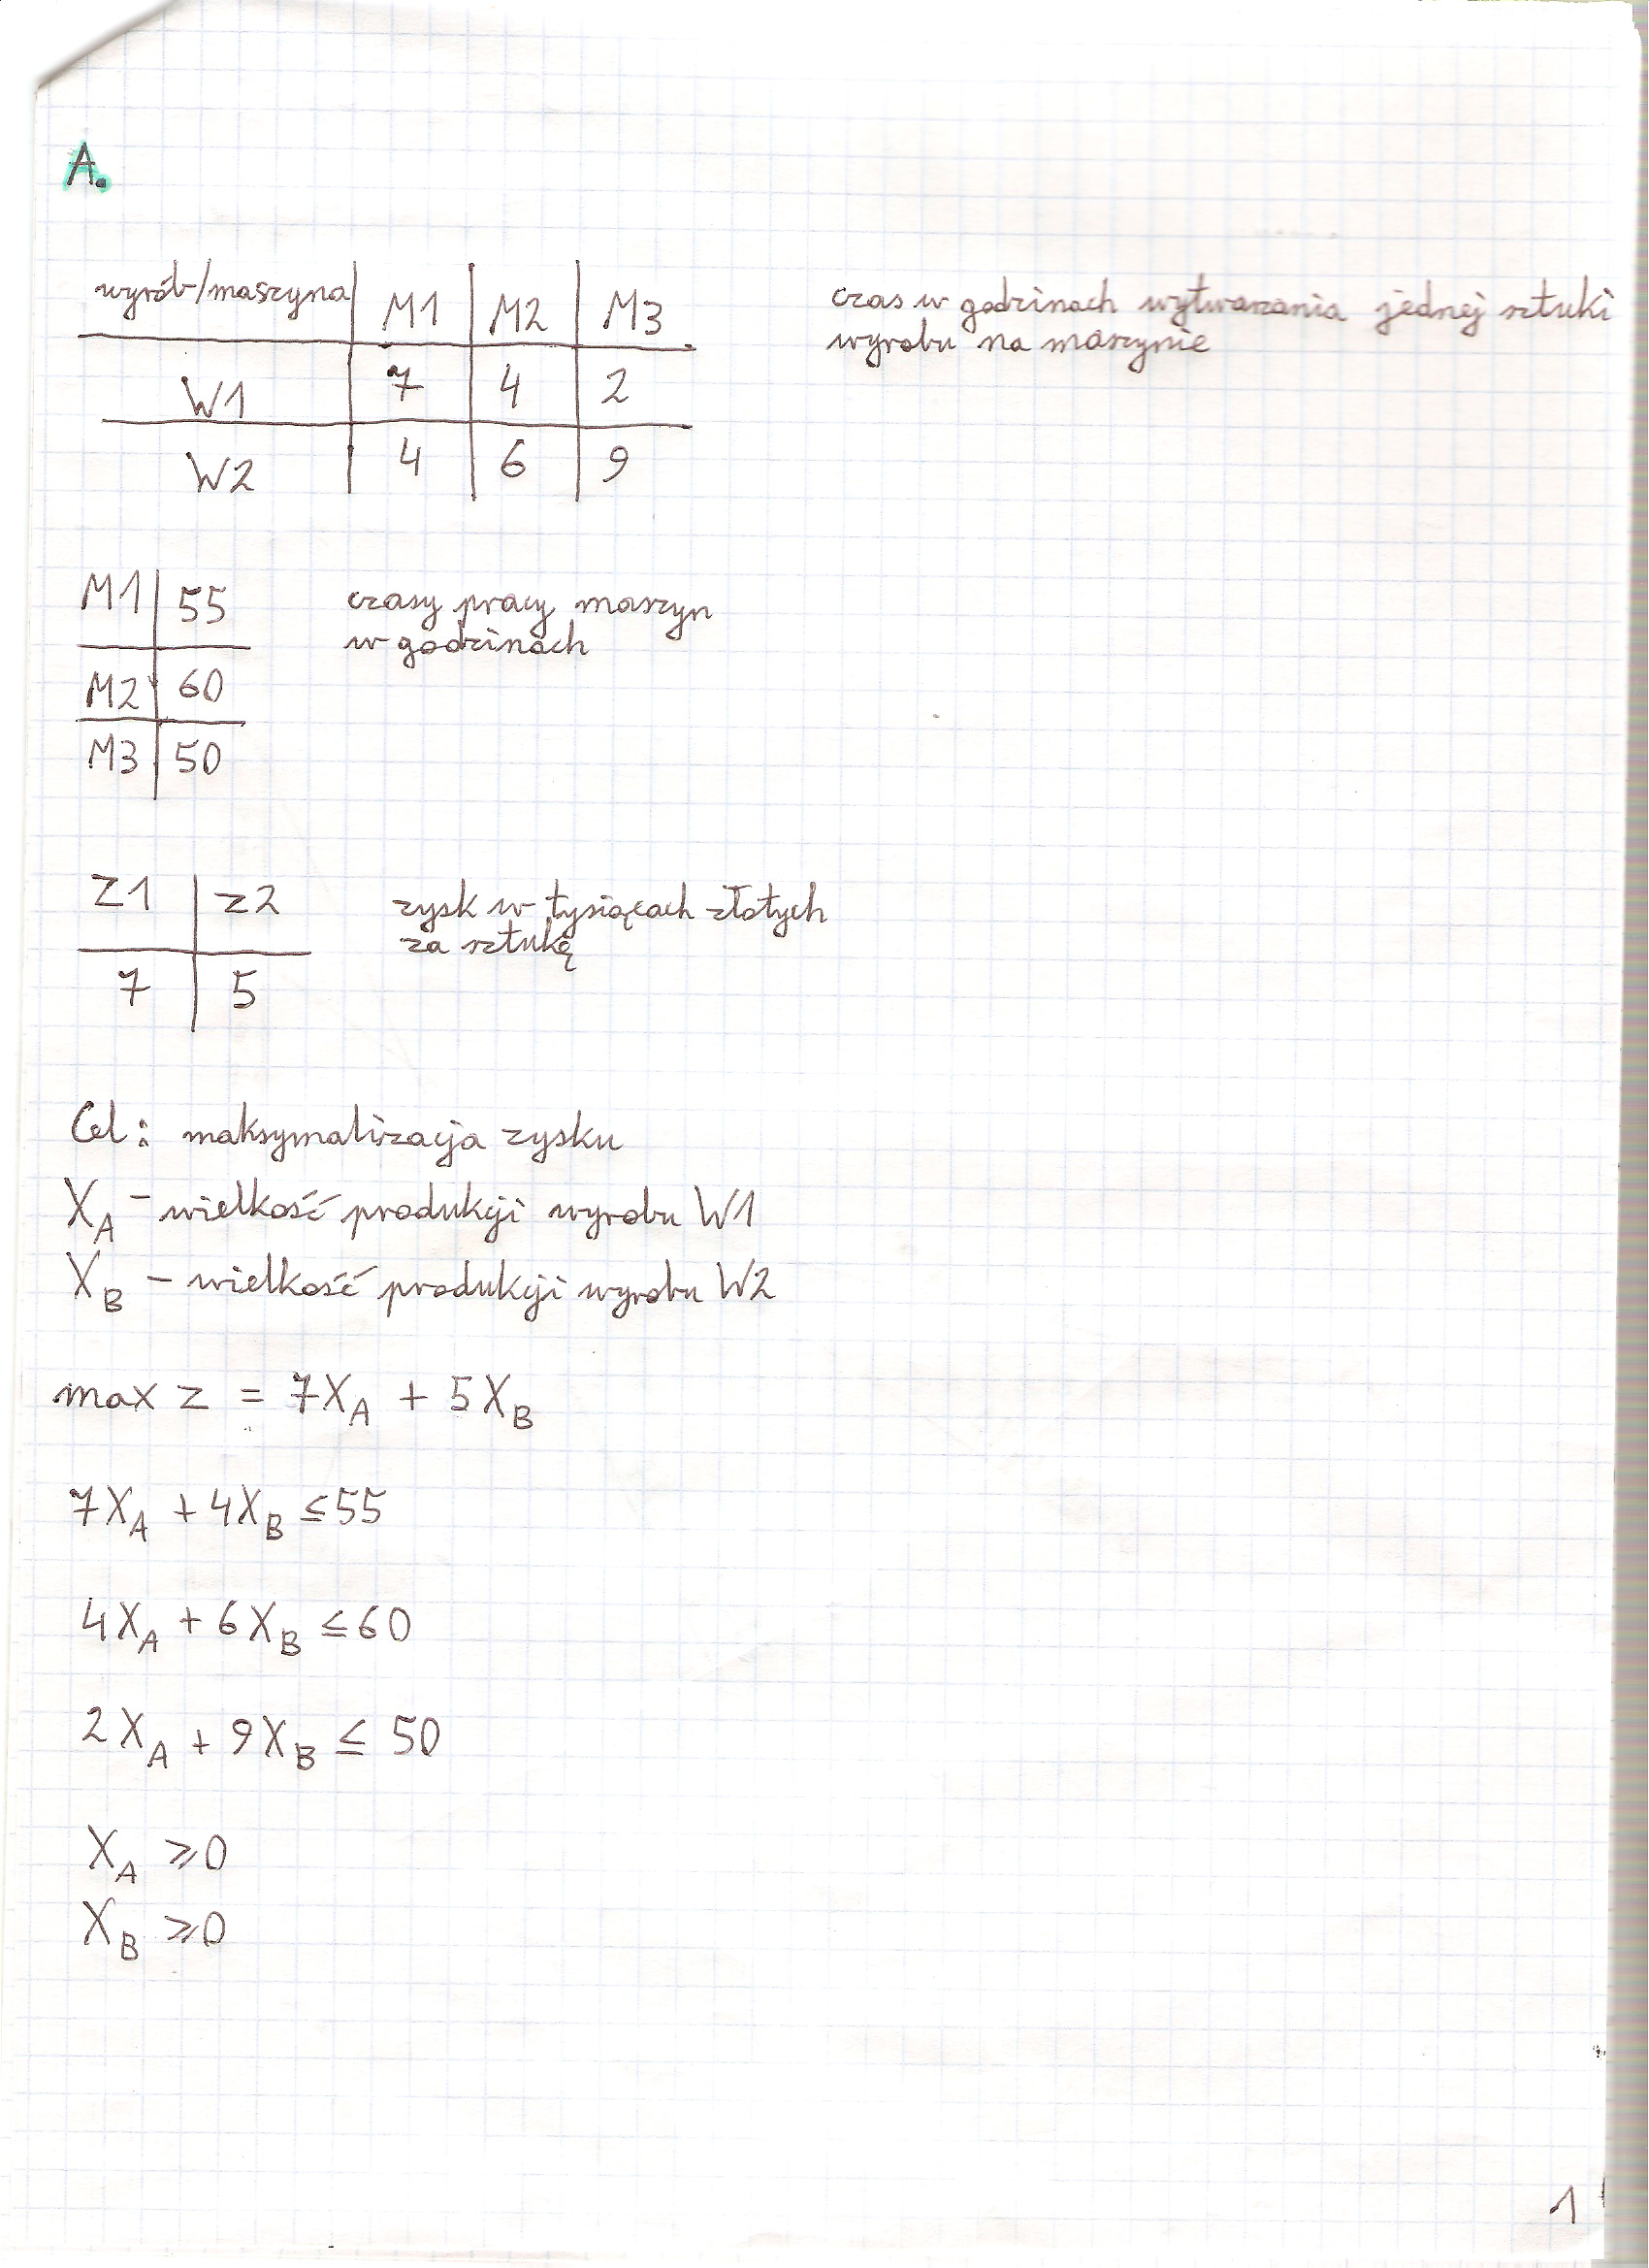 A.
wyrób/maszyna M1 M2 M3
czas w godzinach wytwarzania jednej sztuki
wyrobu na maszynie
W1 7 4 2
W2 4 6 9
M1 55
czasy pracy maszyn
w godzinach
M2 60
M3 50
Z1 Z2
zysk w tysiącach złotych
za sztukę
7 5
Cel: maksymalizacja zysku
X_A – wielkość produkcji wyrobu W1
X_B – wielkość produkcji wyrobu W2
max z = 7X_A + 5X_B
7X_A + 4X_B ≤ 55
4X_A + 6X_B ≤ 60
2X_A + 9X_B ≤ 50
X_A ≥ 0
X_B ≥ 0
1